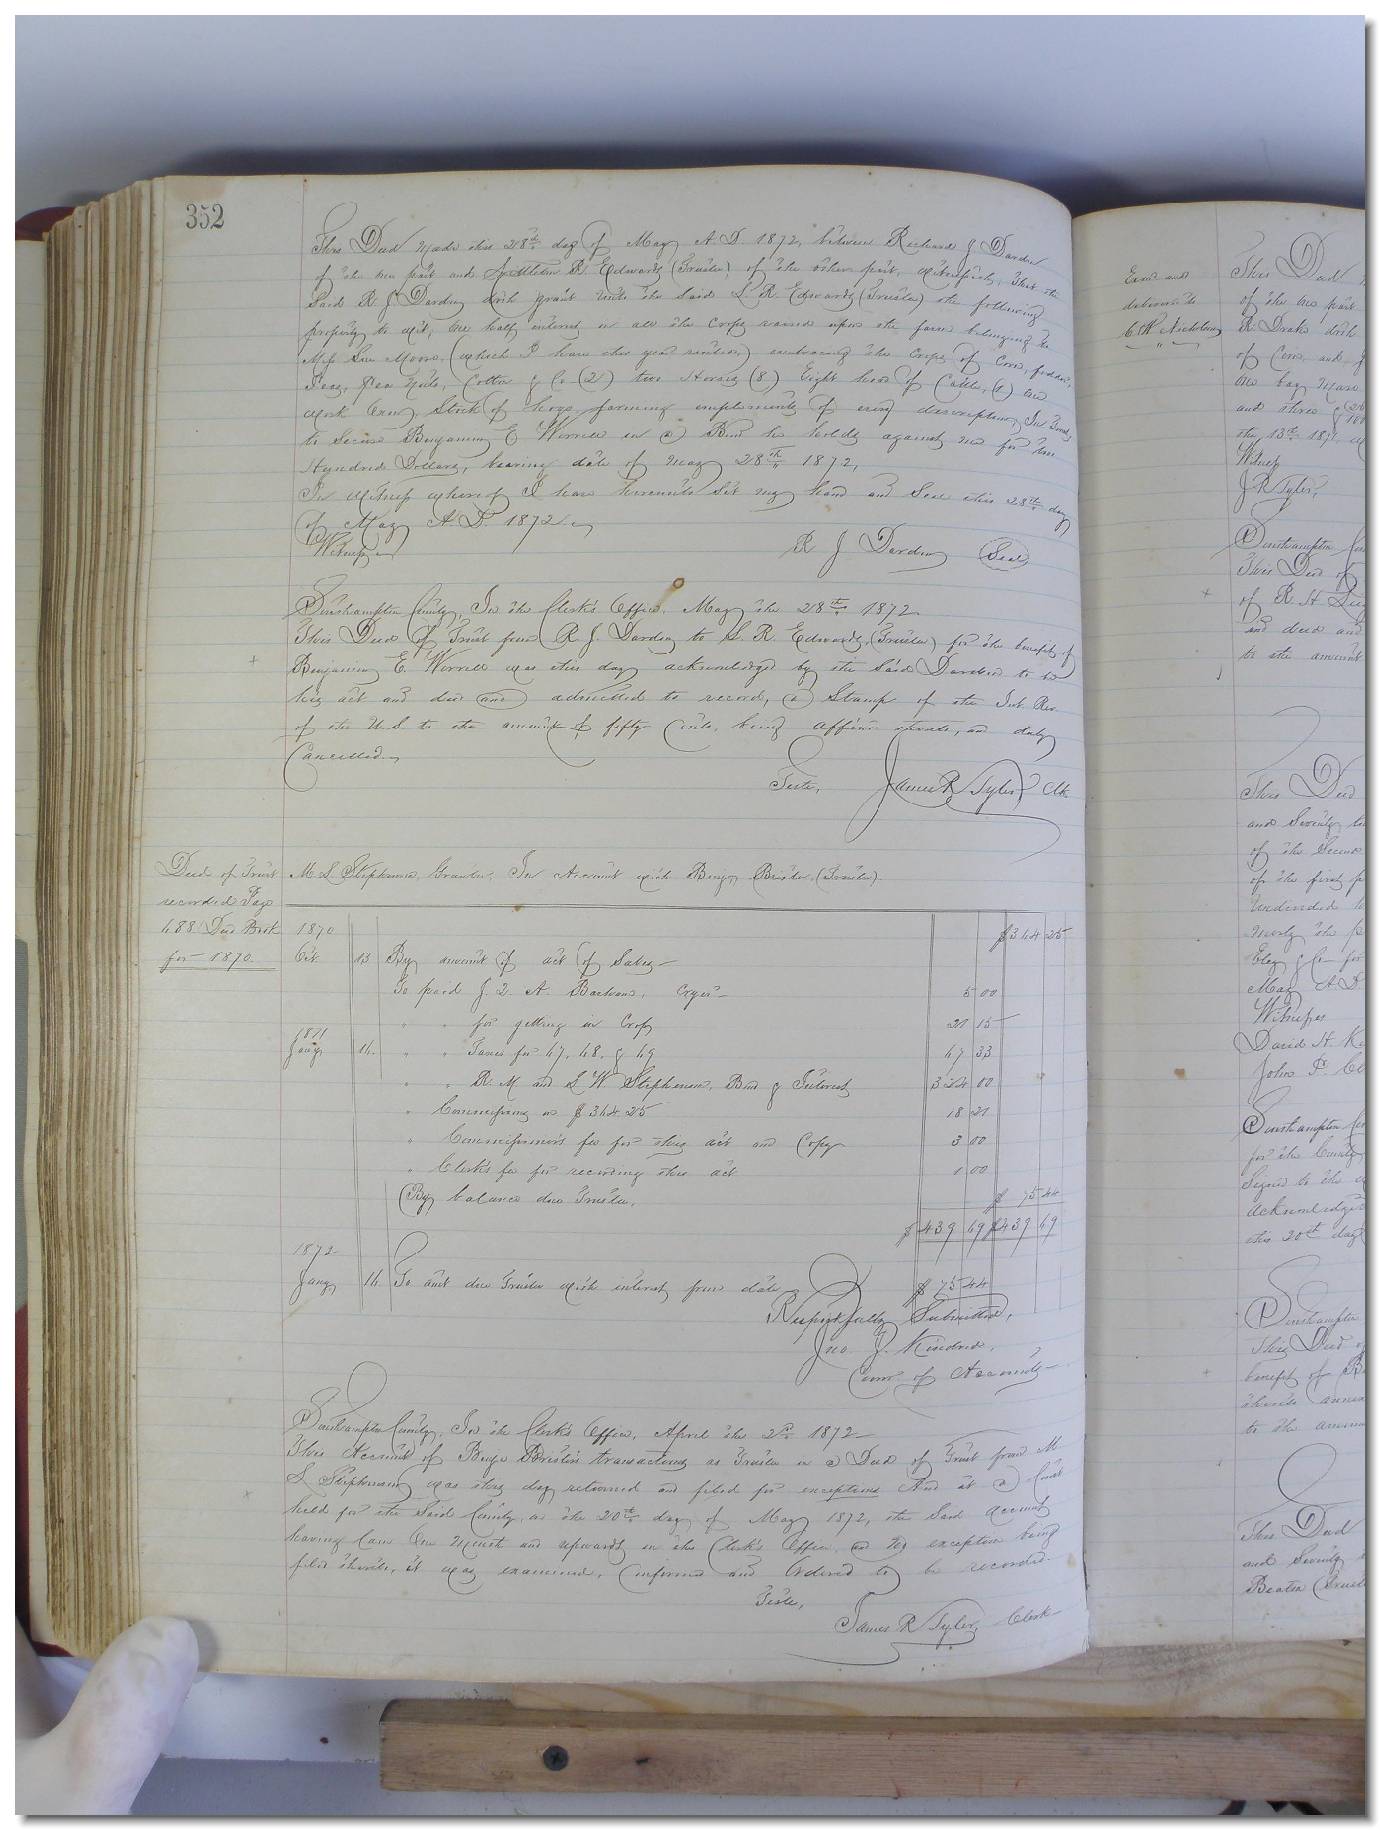 352
This Deed made this 28th day of May A.D. 1872, between Richard J Darden
of the one part and Littleton R Edwards (Trustee) of the other part, Witnesseth, That the
Said R. J Darden doth grant unto the said L. R. Edwards (Trustee) the following
property to wit, one half interest in all the crops raised upon the farm belonging to
Mrs Sue Moore, (which I have this year rented,) embracing the crops of Corn, fodder,
Peas, Pea Nuts, Cotton & Co (2) two Horses (8) Eight head of Cattle, (1) one
work Cow, Stock of hogs, farming implements of every description, In Trust,
to Secure Benjamin E Worrell in a Bond he holds against me for
Hundred Dollars, bearing date of May 28th 1872,
In Witness whereof I have hereunto Set my hand and Seal this 28th day
of May A.D. 1872
Witness
R J Darden (Seal)
Southampton County, In the Clerk's Office, May the 28th 1872
This Deed of Trust from R. J. Darden to L. R. Edwards, (Trustee) for the benefit of
Benjamin E. Worrell was this day acknowledged by the said Darden to be
his act and deed and admitted to record, a Stamp of the Int. Rev.
of the U.S to the amount of fifty Cents, being affixed thereto, and duly
Cancelled.
Teste, James R Tyler, Clk
Deed of Trust
recorded Page
488 Deed Book
for 1870.
M L Stephenson, Grantor, In Account with Benjn Bristor, (Trustee)
1870 $364 25
Oct 13 By amount of act of Sales
To paid J. D. A. Barham, Cryer 5 00
" " for getting in Crop 21 15
1871
Jany 16. " " Taxes for 67, 68, & 69 67 33
" " R. M and L W Stephenson, Bond & Interest 324 00
" Commissions on $364 25 18 21
" Commissioner's fee for this act and Copy 3 00
" Clerk's fee for recording this act 1 00
By balance due Trustee, $ 75 44
$439 69 $439 69
1872
Jany 16. To amt due Trustee with interest from date $ 75 44
Respectfully Submitted,
Jno J. Kindred,
Comr of Accounts
Southampton County, In the Clerk's Office, April the 2d 1872
This Account of Benjn Bristor's transactions as Trustee in a Deed of Trust from M
L Stephenson was this day returned and filed for exceptions And at a Court
held for the Said County, on the 20th day of May 1872, the Said account
having lain One Month and upwards in the Clerk's Office, and no exception being
filed thereto, it was examined, Confirmed and Ordered to be recorded.
Teste,
James R Tyler, Clerk
Exd and
delivered to
C. W Nicholson
This Deed
of the one part
R. Drake doth
of Corn, and
one bay Mare
and three
the 13th 187
Witness
J R Tyler,
Southampton
This Deed of
of R. H
and deed and
to the amount
This Deed
and Seventy
of the Second
of the first
undivided
the
& Co for
May A.D.
Witnesses
David H.
John P.
Southampton
for the County
Signed to the
acknowledged
this 20th day
Southampton
This Deed
benefit of
thereto annexed
to the amount
This Deed
and Seventy